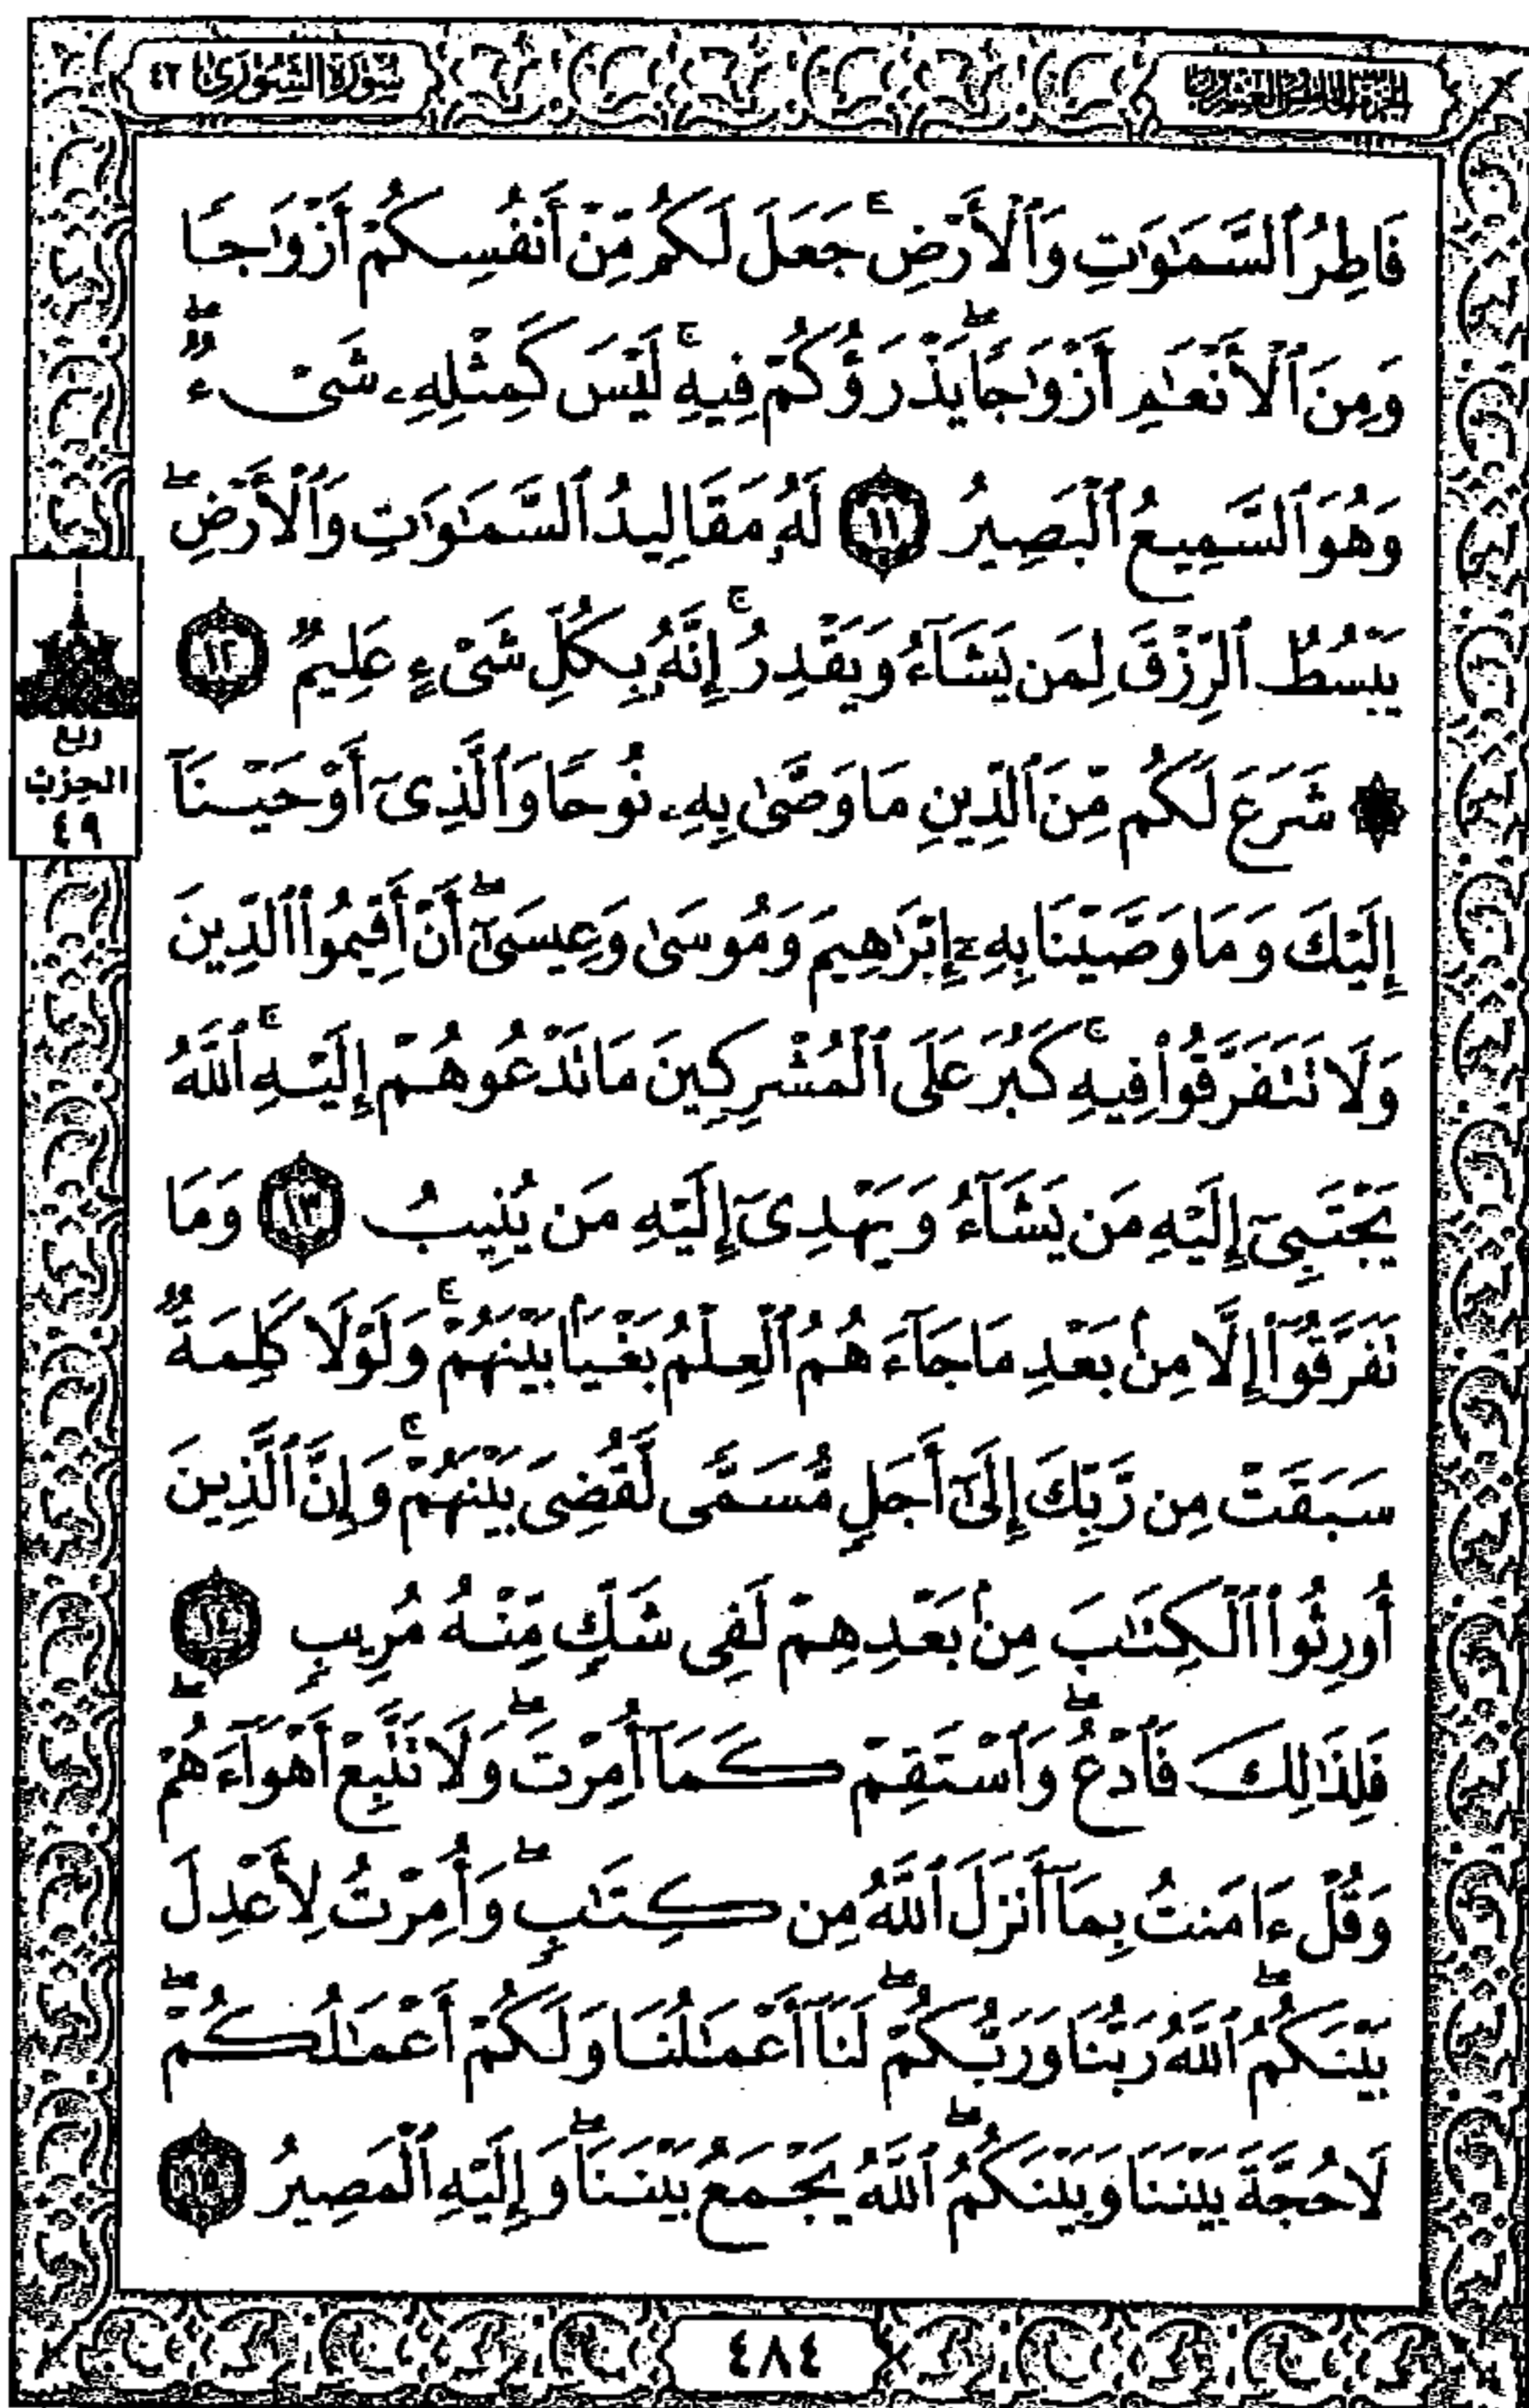 الجزء الخامس والعشرون
سورة الشورى ٤٢
فَاطِرُ ٱلسَّمَٰوَٰتِ وَٱلْأَرْضِ ۚ جَعَلَ لَكُم مِّنْ أَنفُسِكُمْ أَزْوَٰجًا
وَمِنَ ٱلْأَنْعَٰمِ أَزْوَٰجًا ۖ يَذْرَؤُكُمْ فِيهِ ۚ لَيْسَ كَمِثْلِهِۦ شَىْءٌ ۖ
وَهُوَ ٱلسَّمِيعُ ٱلْبَصِيرُ ١١ لَهُۥ مَقَالِيدُ ٱلسَّمَٰوَٰتِ وَٱلْأَرْضِ ۖ
يَبْسُطُ ٱلرِّزْقَ لِمَن يَشَآءُ وَيَقْدِرُ ۚ إِنَّهُۥ بِكُلِّ شَىْءٍ عَلِيمٌ ١٢
۞ شَرَعَ لَكُم مِّنَ ٱلدِّينِ مَا وَصَّىٰ بِهِۦ نُوحًا وَٱلَّذِىٓ أَوْحَيْنَآ
إِلَيْكَ وَمَا وَصَّيْنَا بِهِۦٓ إِبْرَٰهِيمَ وَمُوسَىٰ وَعِيسَىٰٓ ۖ أَنْ أَقِيمُوا۟ ٱلدِّينَ
وَلَا تَتَفَرَّقُوا۟ فِيهِ ۚ كَبُرَ عَلَى ٱلْمُشْرِكِينَ مَا تَدْعُوهُمْ إِلَيْهِ ۚ ٱللَّهُ
يَجْتَبِىٓ إِلَيْهِ مَن يَشَآءُ وَيَهْدِىٓ إِلَيْهِ مَن يُنِيبُ ١٣ وَمَا
تَفَرَّقُوٓا۟ إِلَّا مِنۢ بَعْدِ مَا جَآءَهُمُ ٱلْعِلْمُ بَغْيًۢا بَيْنَهُمْ ۚ وَلَوْلَا كَلِمَةٌ
سَبَقَتْ مِن رَّبِّكَ إِلَىٰٓ أَجَلٍ مُّسَمًّى لَّقُضِىَ بَيْنَهُمْ ۚ وَإِنَّ ٱلَّذِينَ
أُورِثُوا۟ ٱلْكِتَٰبَ مِنۢ بَعْدِهِمْ لَفِى شَكٍّ مِّنْهُ مُرِيبٍ ١٤
فَلِذَٰلِكَ فَٱدْعُ ۖ وَٱسْتَقِمْ كَمَآ أُمِرْتَ ۖ وَلَا تَتَّبِعْ أَهْوَآءَهُمْ ۖ
وَقُلْ ءَامَنتُ بِمَآ أَنزَلَ ٱللَّهُ مِن كِتَٰبٍ ۖ وَأُمِرْتُ لِأَعْدِلَ
بَيْنَكُمُ ۖ ٱللَّهُ رَبُّنَا وَرَبُّكُمْ ۖ لَنَآ أَعْمَٰلُنَا وَلَكُمْ أَعْمَٰلُكُمْ ۖ
لَا حُجَّةَ بَيْنَنَا وَبَيْنَكُمُ ۖ ٱللَّهُ يَجْمَعُ بَيْنَنَا ۖ وَإِلَيْهِ ٱلْمَصِيرُ ١٥
ربع
الحزب
٤٩
٤٨٤